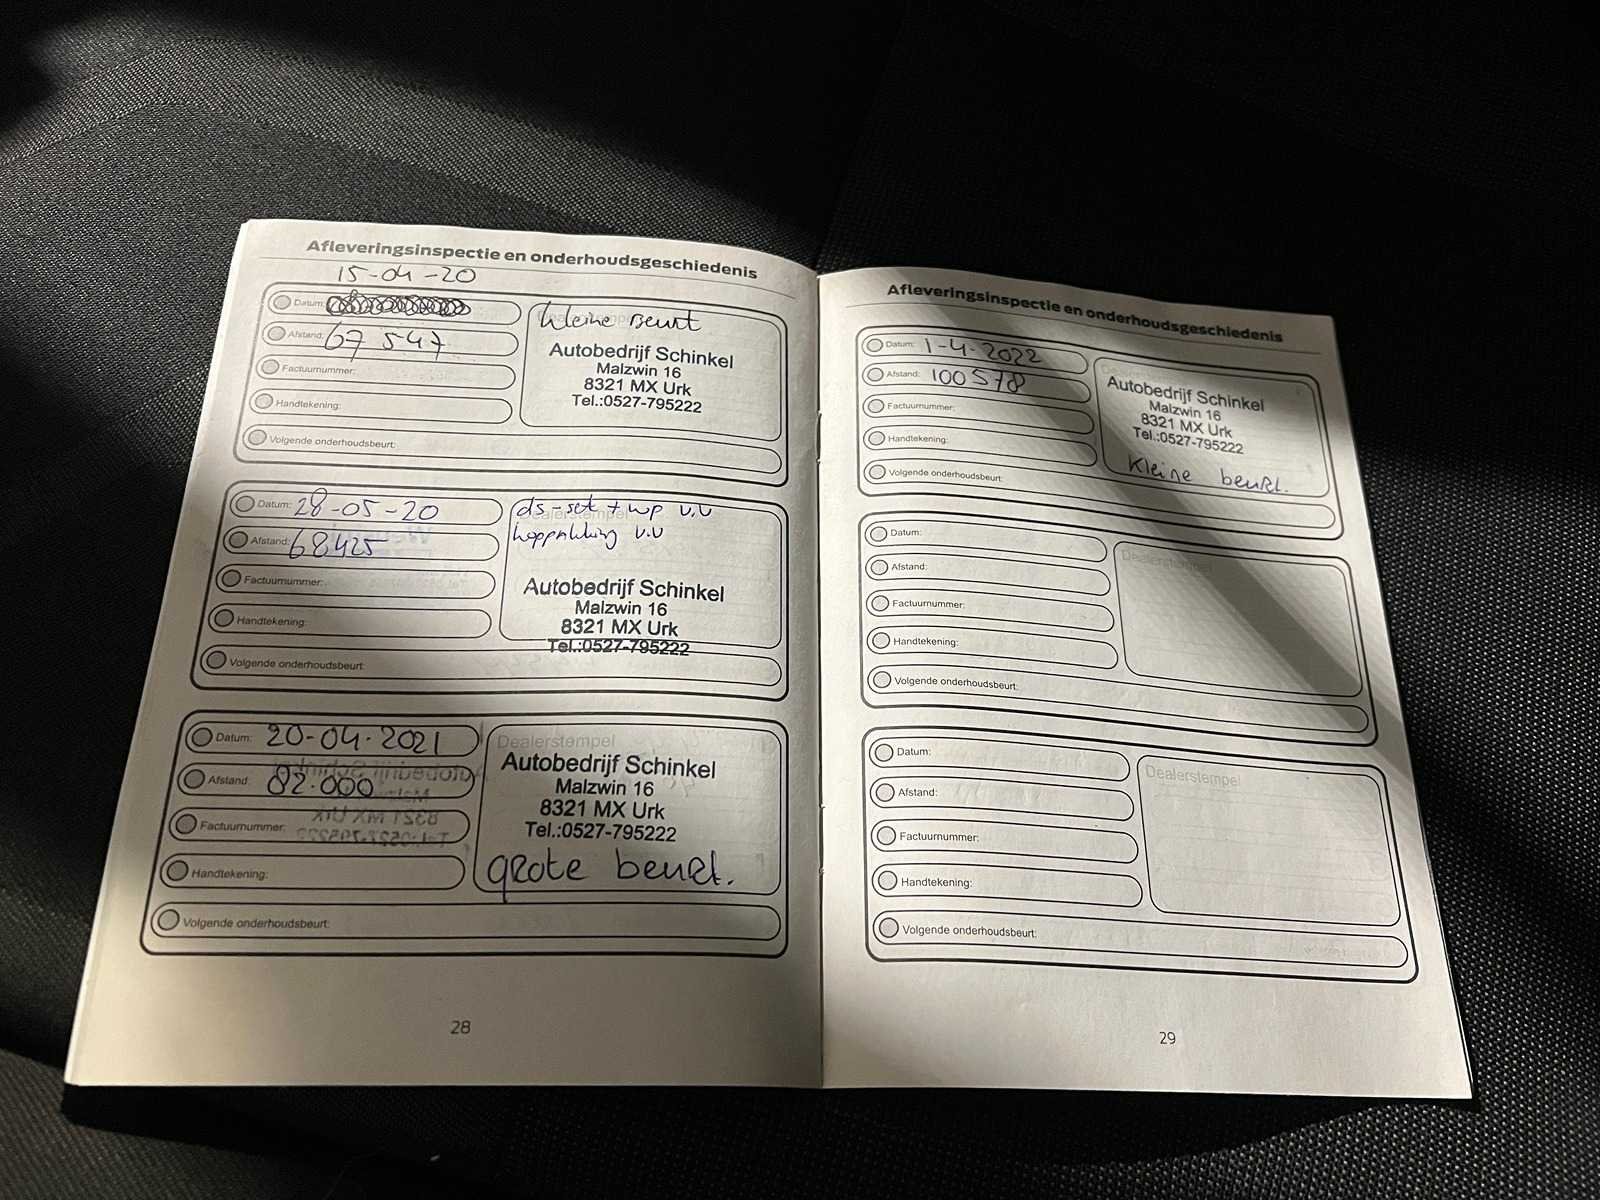 Afleveringsinspectie en onderhoudsgeschiedenis
15-04-20
Datum:
Afstand: 67 547
Factuurnummer:
Handtekening:
Volgende onderhoudsbeurt:
kleine Beurt
Autobedrijf Schinkel
Malzwin 16
8321 MX Urk
Tel.:0527-795222
Datum: 28-05-20
Afstand: 68425
Factuurnummer:
Handtekening:
Volgende onderhoudsbeurt:
Dealerstempel
ds-set + wp v.v
koppakking v.v
Autobedrijf Schinkel
Malzwin 16
8321 MX Urk
Tel.:0527-795222
Datum: 20-04-2021
Afstand: 82.000
Factuurnummer:
Handtekening:
Volgende onderhoudsbeurt:
Dealerstempel
Autobedrijf Schinkel
Malzwin 16
8321 MX Urk
Tel.:0527-795222
grote beurt.
28
Afleveringsinspectie en onderhoudsgeschiedenis
Datum: 1-4-2022
Afstand: 100578
Factuurnummer:
Handtekening:
Volgende onderhoudsbeurt:
Autobedrijf Schinkel
Malzwin 16
8321 MX Urk
Tel.:0527-795222
kleine beurt.
Datum:
Afstand:
Factuurnummer:
Handtekening:
Volgende onderhoudsbeurt:
Dealerstempel
Datum:
Afstand:
Factuurnummer:
Handtekening:
Volgende onderhoudsbeurt:
Dealerstempel
29